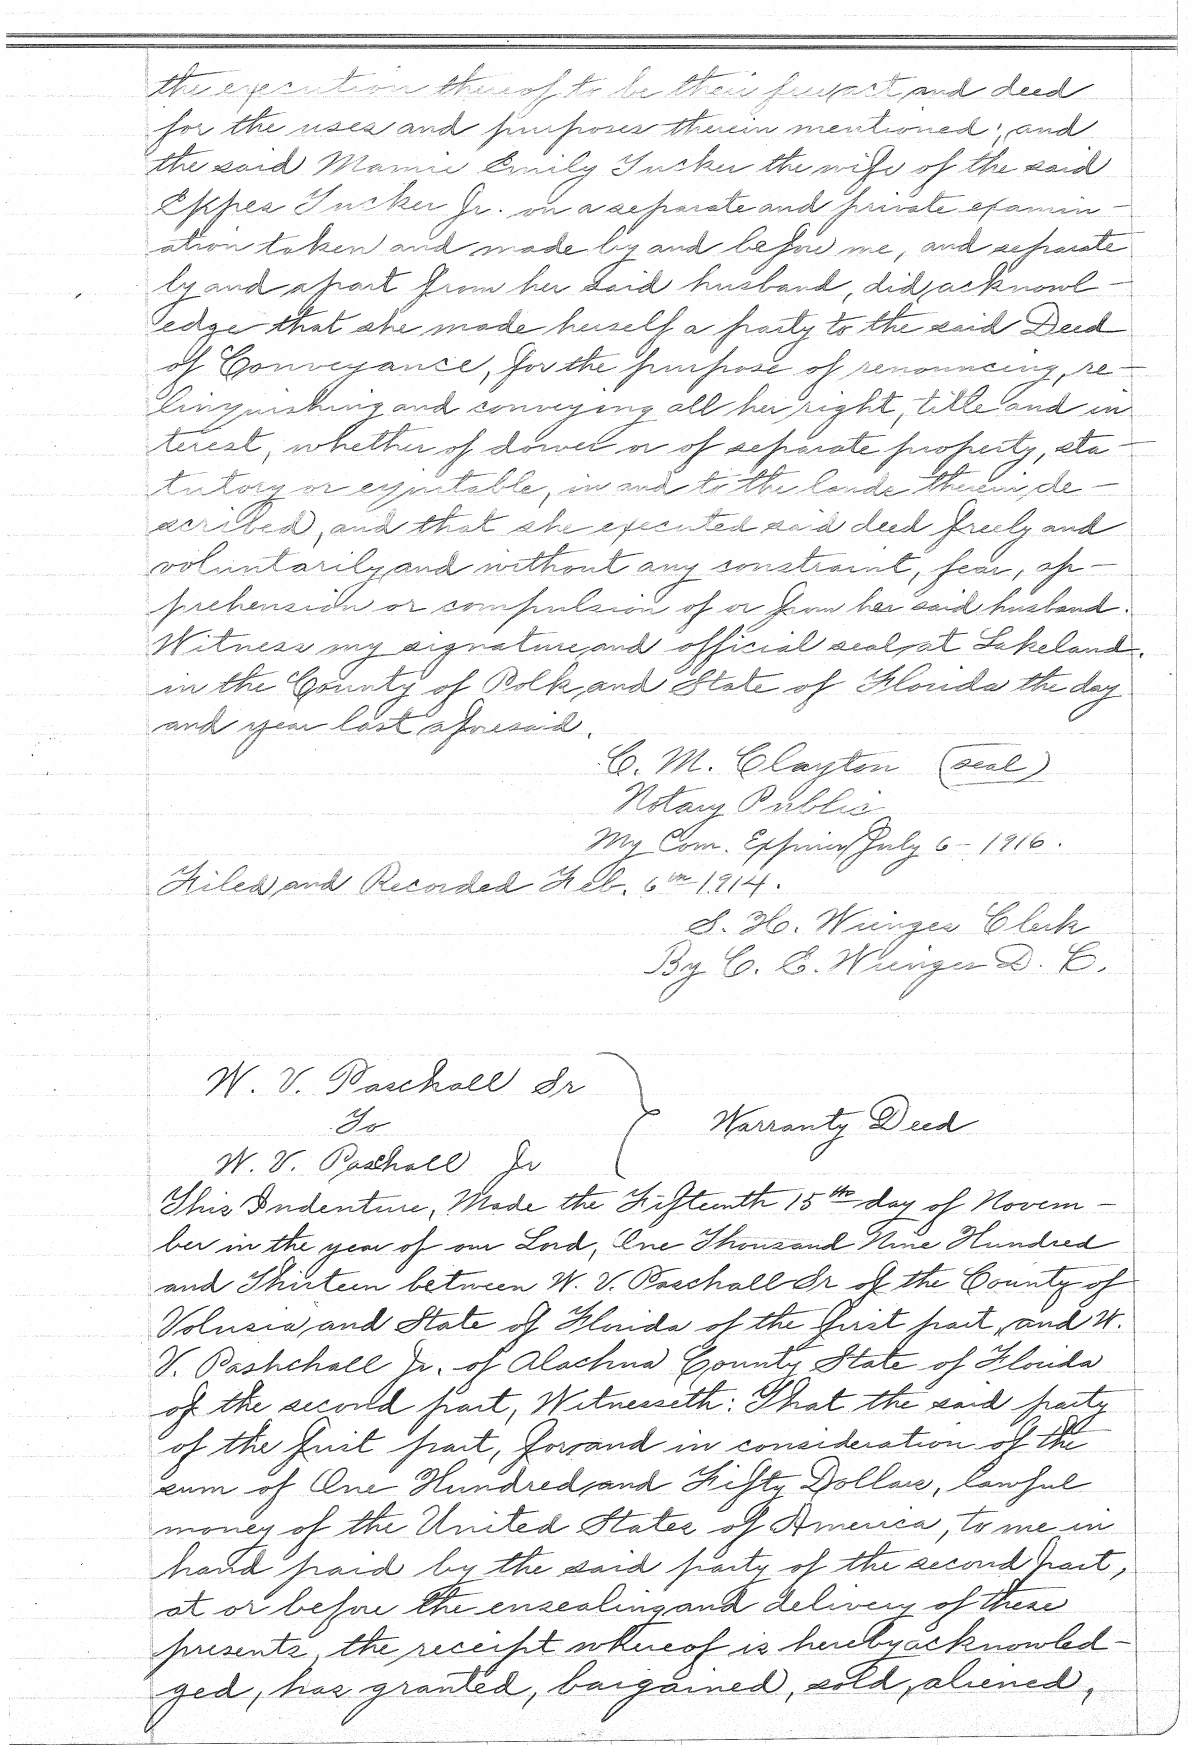 the execution thereof to be their free act and deed
for the uses and purposes therein mentioned; and
the said Mamie Emily Tucker the wife of the said
Eppes Tucker Jr. on a separate and private examin-
ation taken and made by and before me, and separate
ly and apart from her said husband, did acknowl-
edge that she made herself a party to the said Deed
of Conveyance, for the purpose of renouncing, re-
linquishing and conveying all her right, title and in
terest, whether of dower or of separate property, sta-
tutory or equitable, in and to the lands therein de-
scribed, and that she executed said deed freely and
voluntarily and without any constraint, fear, ap-
prehension or compulsion of or from her said husband.
Witness my signature and official seal at Lakeland.
in the County of Polk and State of Florida the day
and year last aforesaid.
C. M. Clayton (seal)
Notary Public
My Com. Expires July 6-1916.
Filed and Recorded Feb. 6th 1914.
S. H. Wienges Clerk
By C. E. Wienges D. C.
W. V. Paschall Sr
To
Warranty Deed
W. V. Paschall Jr
This Indenture, Made the Fifteenth 15th day of Novem-
ber in the year of our Lord, One Thousand Nine Hundred
and Thirteen between W. V. Paschall Sr of the County of
Volusia, and State of Florida of the first part, and W.
V. Pashchall Jr. of Alachua County State of Florida
of the second part, Witnesseth: That the said party
of the first part, for and in consideration of the
sum of One Hundred and Fifty Dollars, lawful
money of the United States of America, to me in
hand paid by the said party of the second part,
at or before the ensealing and delivery of these
presents, the receipt whereof is hereby acknowled-
ged, has granted, bargained, sold, aliened,